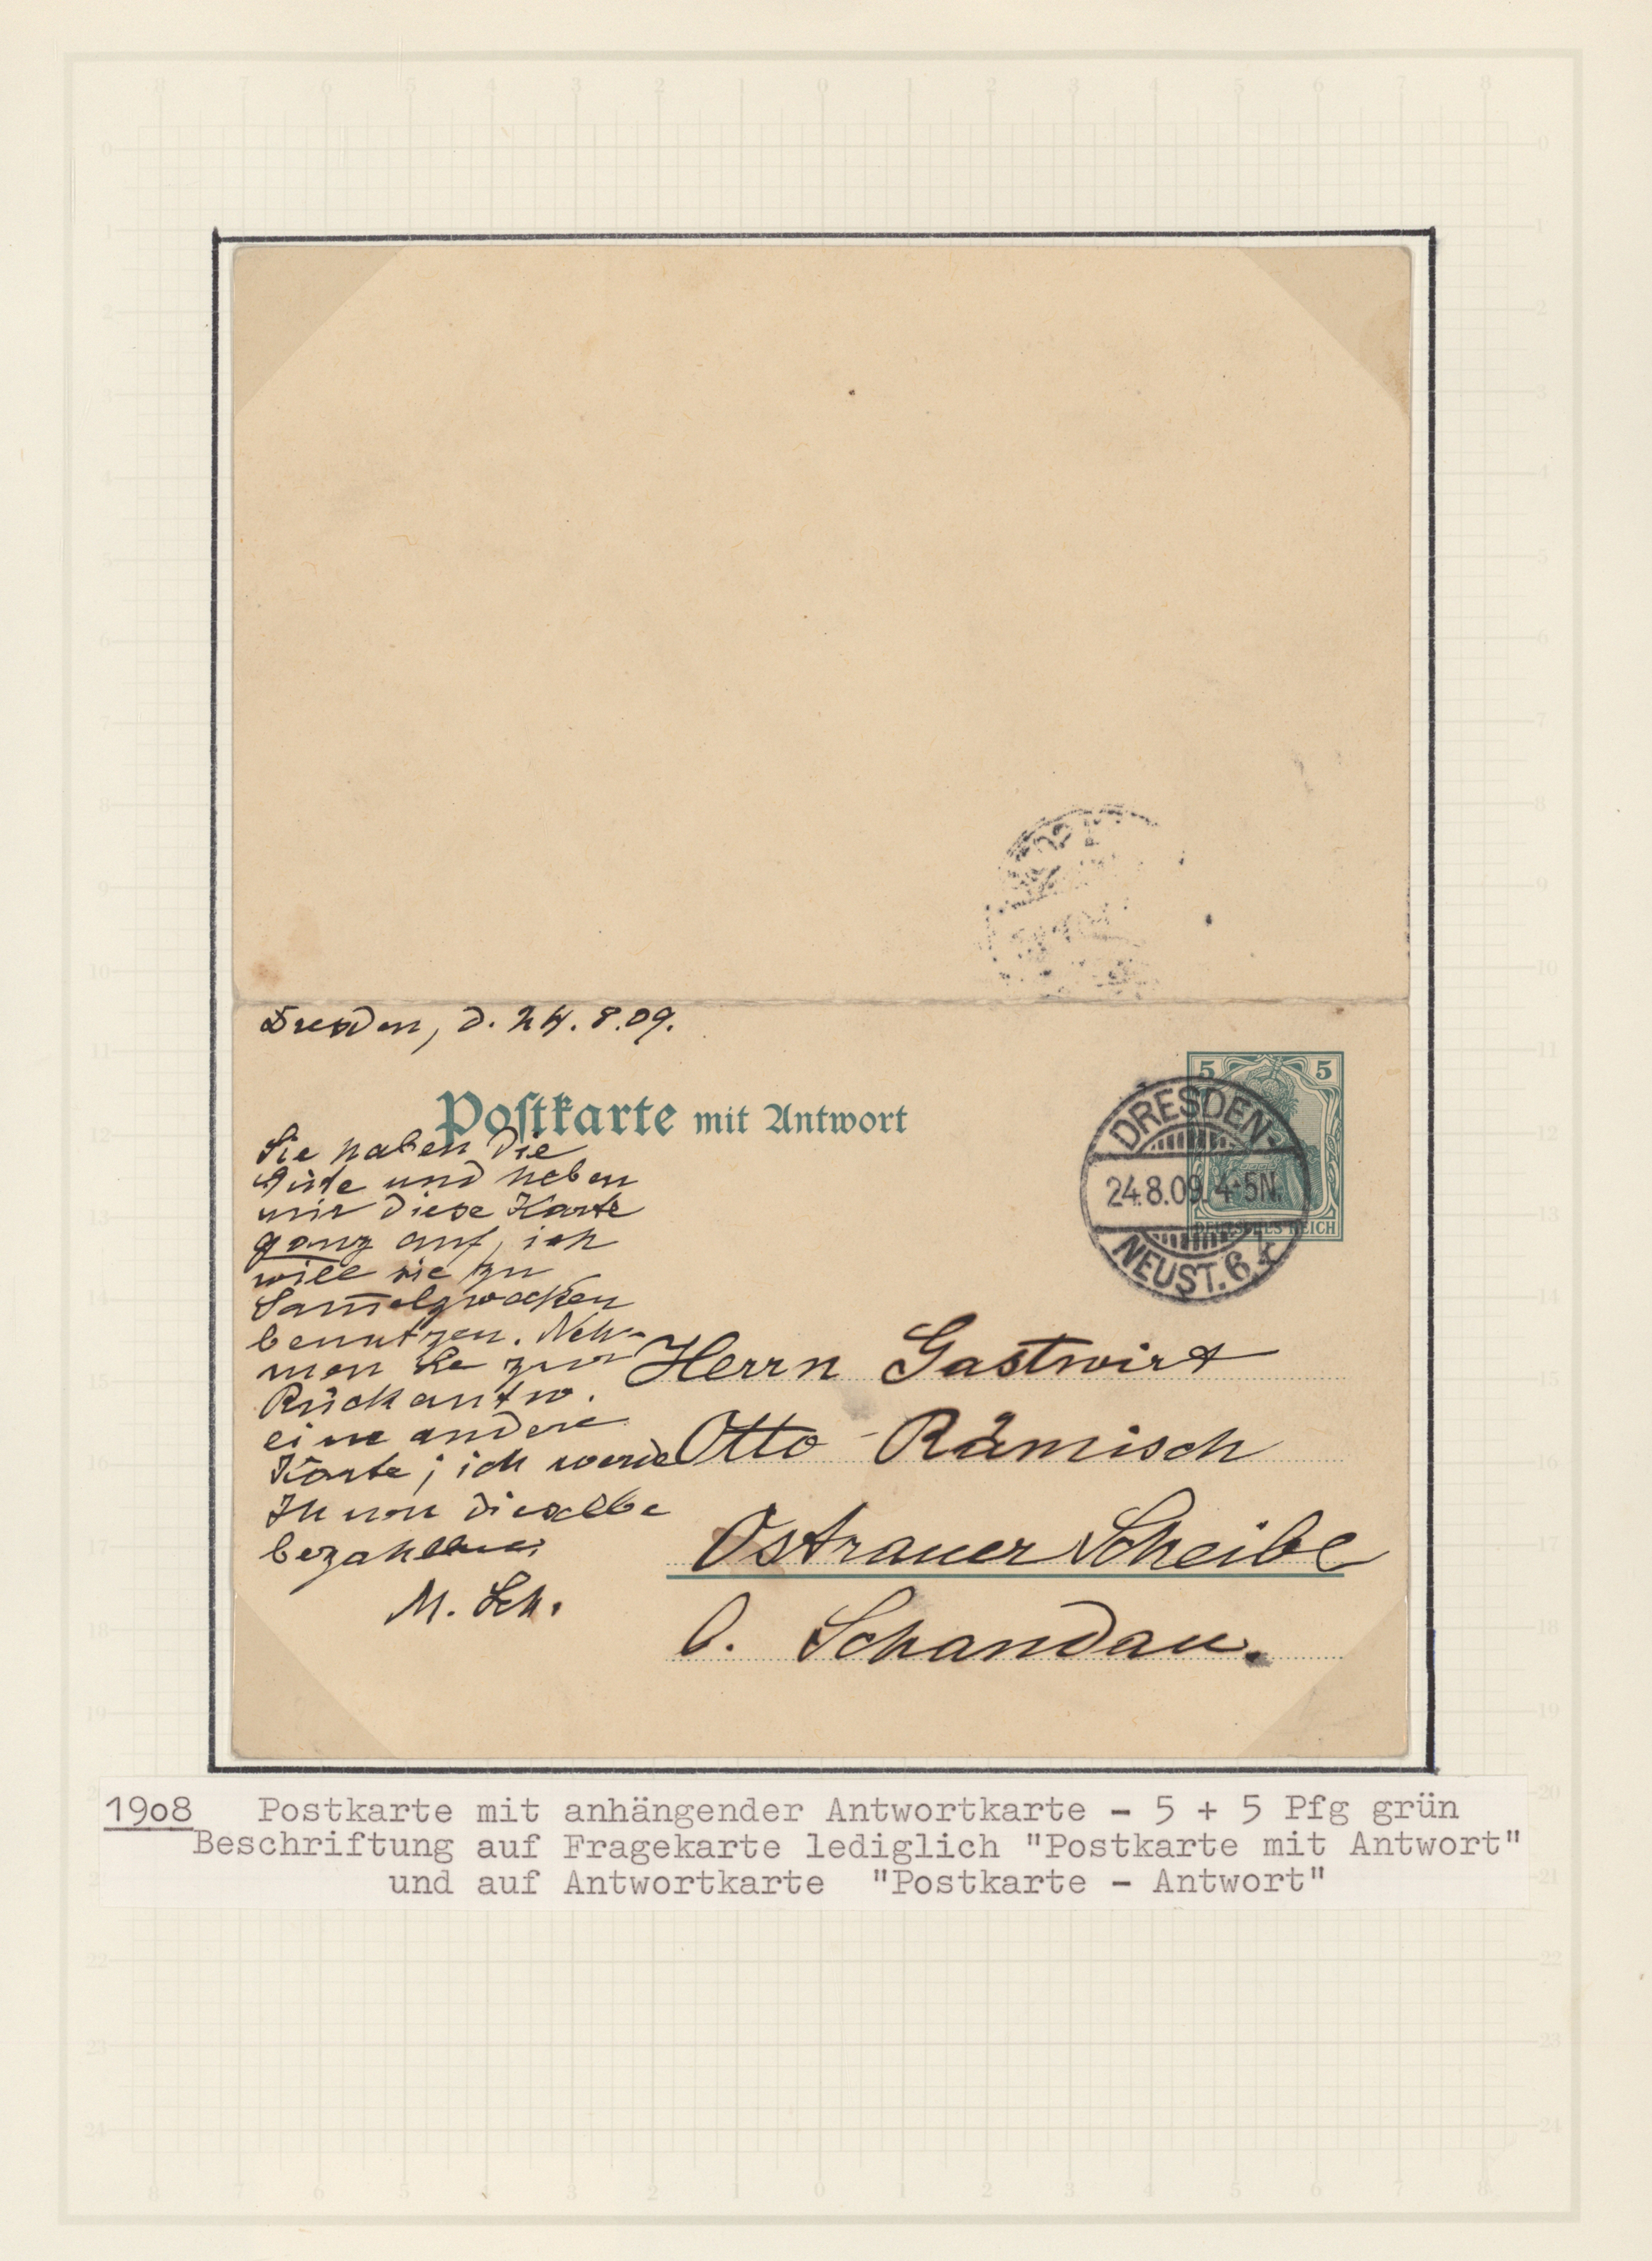 Dresden, d. 24. 8. 09.
Postkarte mit Antwort
5 5
DEUTSCHES REICH
DRESDEN-
24.8.09. 4-5N.
NEUST. 6.
Sie haben die
Güte und heben
mir diese Karte
ganz auf, ich
will sie zu
Sam̅elzwecken
benutzen. Neh-
men Sie zur
Rückantw.
eine andere
Karte; ich werde
Ihnen dieselbe
bezahlen.
M. Sch.
Herrn Gastwirt
Otto Rämisch
Ostrauer Scheibe
b. Schandau.
19o8 Postkarte mit anhängender Antwortkarte - 5 + 5 Pfg grün
Beschriftung auf Fragekarte lediglich "Postkarte mit Antwort"
und auf Antwortkarte "Postkarte - Antwort"